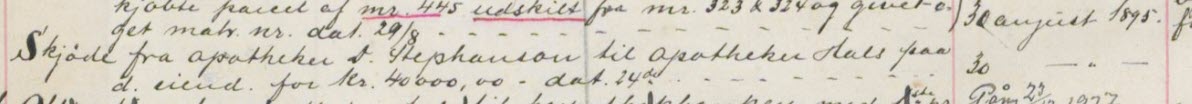 kjøbte parcel af mr. 445 udskilt fra mr. 323 & 324 og givet e-
get matr. nr. dat. 29/8 - - - - - - - - - 30 august 1895.
Skjøde fra apotheker D. Stephanson til apotheker Hals paa
d. eiend. for kr. 40000,00 - dat. 24de - - - - - - - 30 — " —